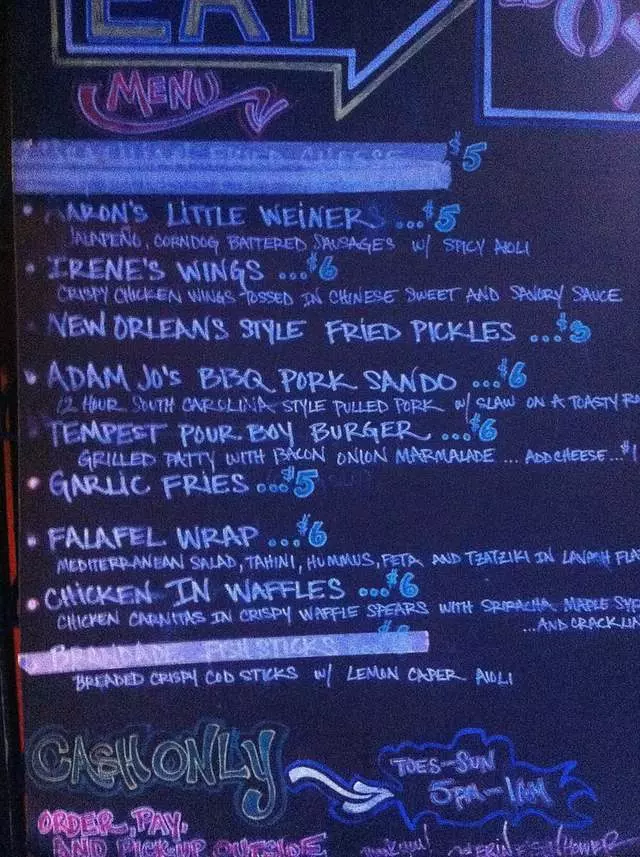 EAT
MENU
FRIED CHEESE $5
AARON'S LITTLE WEINERS ...$5
JALAPEÑO, CORNDOG BATTERED SAUSAGES W/ SPICY AIOLI
IRENE'S WINGS ...$6
CRISPY CHICKEN WINGS TOSSED IN CHINESE SWEET AND SAVORY SAUCE
NEW ORLEANS STYLE FRIED PICKLES ...$5
ADAM JO'S BBQ PORK SANDO ...$6
12 HOUR SOUTH CAROLINA STYLE PULLED PORK W/ SLAW ON A TOASTY
TEMPEST POUR BOY BURGER ...$6
GRILLED PATTY WITH BACON ONION MARMALADE ... ADD CHEESE...$1
GARLIC FRIES ...$5
FALAFEL WRAP ...$6
MEDITERRANEAN SALAD, TAHINI, HUMMUS, FETA AND TZATZIKI IN LAVASH
CHICKEN IN WAFFLES ...$6
CHICKEN CARNITAS IN CRISPY WAFFLE SPEARS WITH SRIRACHA MAPLE
...AND CRACKLIN
FISHSTICKS
BREADED CRISPY COD STICKS W/ LEMON CAPER AIOLI
CASH ONLY
TUES-SUN
5PM-1AM
ORDER, PAY,
AND PICK UP OUTSIDE
THANK YOU!